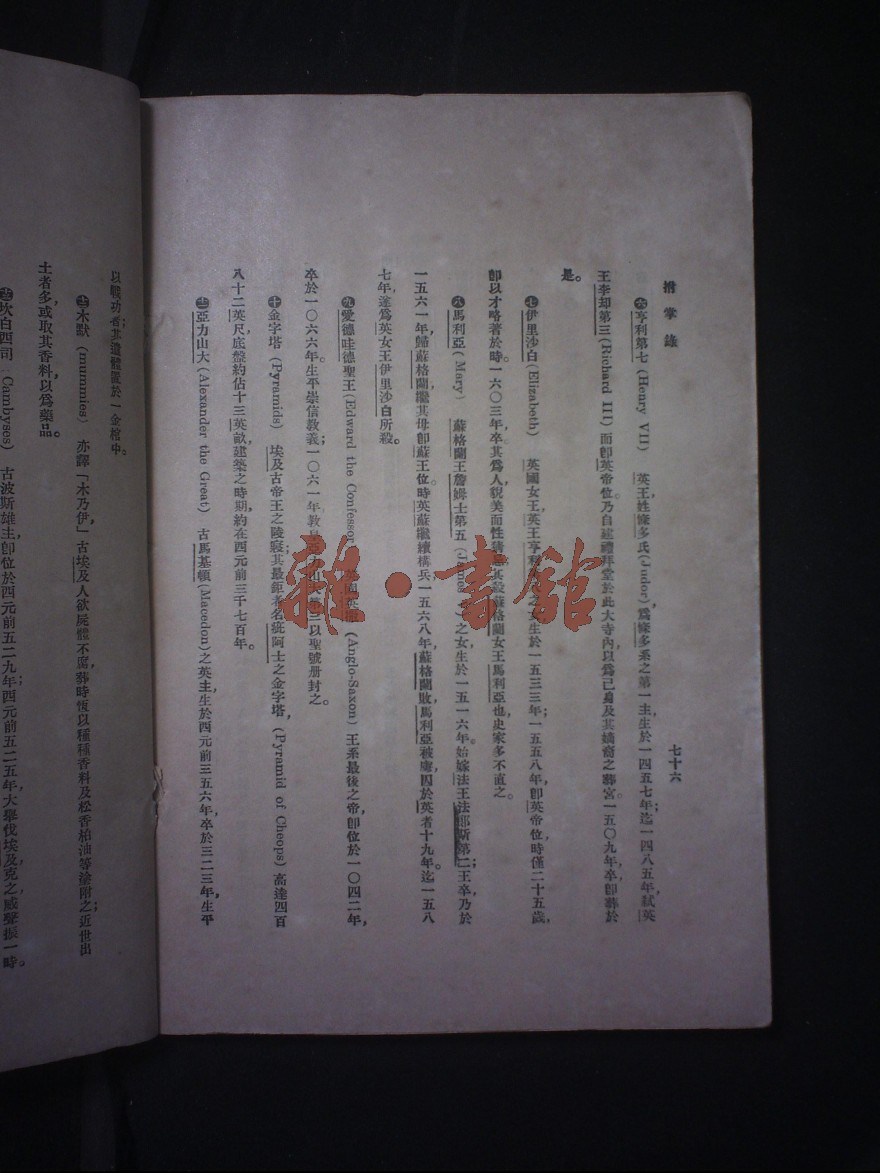 拊掌錄
七十六
㊅亨利第七(Henry VII) 英王,姓條多氏(Judor),爲條多系之第一主,生於一四五七年;迄一四八五年,弒英
王李却第三(Richard III)而卽英帝位。乃自建禮拜堂於此大寺內,以爲己身及其嬌裔之葬宮。一五〇九年卒,卽葬於
是。
㊆伊里沙白(Elizabeth) 英國女王,英王亨利之女,生於一五三三年;一五五八年,卽英帝位,時僅二十五歲,
卽以才略著於時。一六〇三年,卒。其爲人,貌美而性蘇格蘭女王馬利亞也,史家多不直之。
㊇馬利亞(Mary) 蘇格蘭王詹姆士第五(James)之女,生於一五一六年。始嫁法王法郎斯第二;王卒,乃於
一五六一年,歸蘇格蘭,繼其母卽蘇王位。時英蘇繼續構兵,一五六八年,蘇格蘭敗,馬利亞被虜,囚於英者十九年。迄一五八
七年,遂爲英女王伊里沙白所殺。
㊈愛德哇德聖王(Edward the Confessor)(Anglo-Saxon)王系最後之帝,卽位於一〇四二年,
卒於一〇六六年。生平崇信敎義;一〇六一年,敎皇亞力山大第三以聖號册封之。
㊉金字塔(Pyramids) 埃及古帝王之陵寢,其最鉅者名疵阿士之金字塔,(Pyramid of Cheops)高達四百
八十二英尺,底盤約佔十三英畝,建築之時期,約在西元前三千七百年。
⓫亞力山大(Alexander the Great) 古馬基頓(Macedon)之英主,生於西元前三五六年,卒於三二三年,生平
以戰功著;其遺體置於一金棺中。
⓬木默(mummies) 亦譯「木乃伊,」古埃及人欲屍體不腐,葬時恆以種種香料及松香柏油等塗附之,近世出
土者多,或取其香料以爲藥品。
⓭坎白西司(Cambyses) 古波斯雄主,卽位於西元前五二九年,西元前五二五年,大舉伐埃及,克之,威聲振一時。
雜·書館